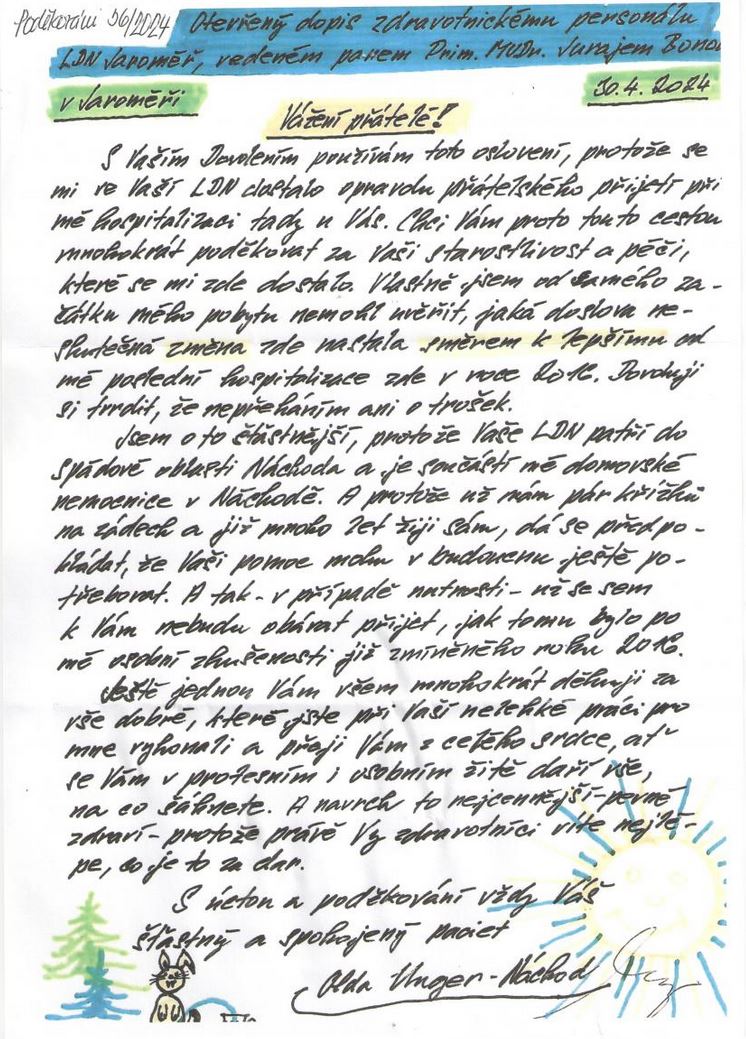 Poděkování 56/2024
Otevřený dopis zdravotnickému personálu
LDN Jaroměř, vedeném panem Prim. MUDr. Jurajem
v Jaroměři
30.4.2024
Vážení přátelé!
S Vaším Dovolením používám toto oslovení, protože se
mi ve Vaší LDN dostalo opravdu přátelského přijetí při
mé hospitalizaci tady u Vás. Chci Vám proto touto cestou
mnohokrát poděkovat za Vaši starostlivost a péči,
které se mi zde dostalo. Vlastně jsem od samého za-
čátku mého pobytu nemohl uvěřit, jaká doslova ne-
skutečná změna zde nastala směrem k lepšímu od
mé poslední hospitalizace zde v roce 2016. Dovoluji
si tvrdit, že nepřeháním ani o trošek.
Jsem o to šťastnější, protože Vaše LDN patří do
spádové oblasti Náchoda a je součástí mé domovské
nemocnice v Náchodě. A protože už mám pár křížků
na zádech a již mnoho let žiji sám, dá se předpo-
kládat, že Vaši pomoc mohu v budoucnu ještě po-
třebovat. A tak - v případě nutnosti - už se sem
k Vám nebudu obávat přijet, jak tomu bylo po
mé osobní zkušenosti již zmíněného roku 2016.
Ještě jednou Vám všem mnohokrát děkuji za
vše dobré, které jste při Vaší nelehké práci pro
mne vykonali a přeji Vám z celého srdce, ať
se Vám v profesním i osobním žitě daří vše,
na co sáhnete. A navrch to nejcennější - pevné
zdraví - protože právě Vy zdravotníci víte nejlé-
pe, co je to za dar.
S úctou a poděkování vždy Váš
šťastný a spokojený paciet
Olda Unger - Náchod